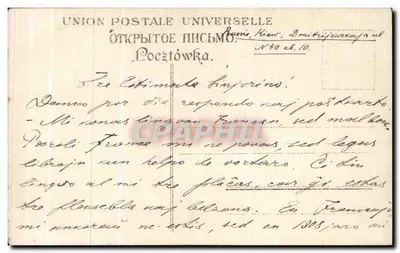 UNION POSTALE UNIVERSELLE
ОТКРЫТОЕ ПИСЬМО.
Pocztówka.
Russie, Kiew, Dmitrijewskaja ul
N 40 кв. 10.
Tre Estimata Sinjorino!
Dankon por Via respondo kaj poŝtkarto
- Mi konas lingvon Francan, sed mal bone.
Paroli France mi ne povas, sed legas
librojn kun helpo de vortaro Ĉi tiu
lingvo al mi tre plaĉas, ĉar ĝi estas
tre fleksebla kaj belsona. En Francujo
mi ankoraŭ ne estis, sed en 1908 jaro mi